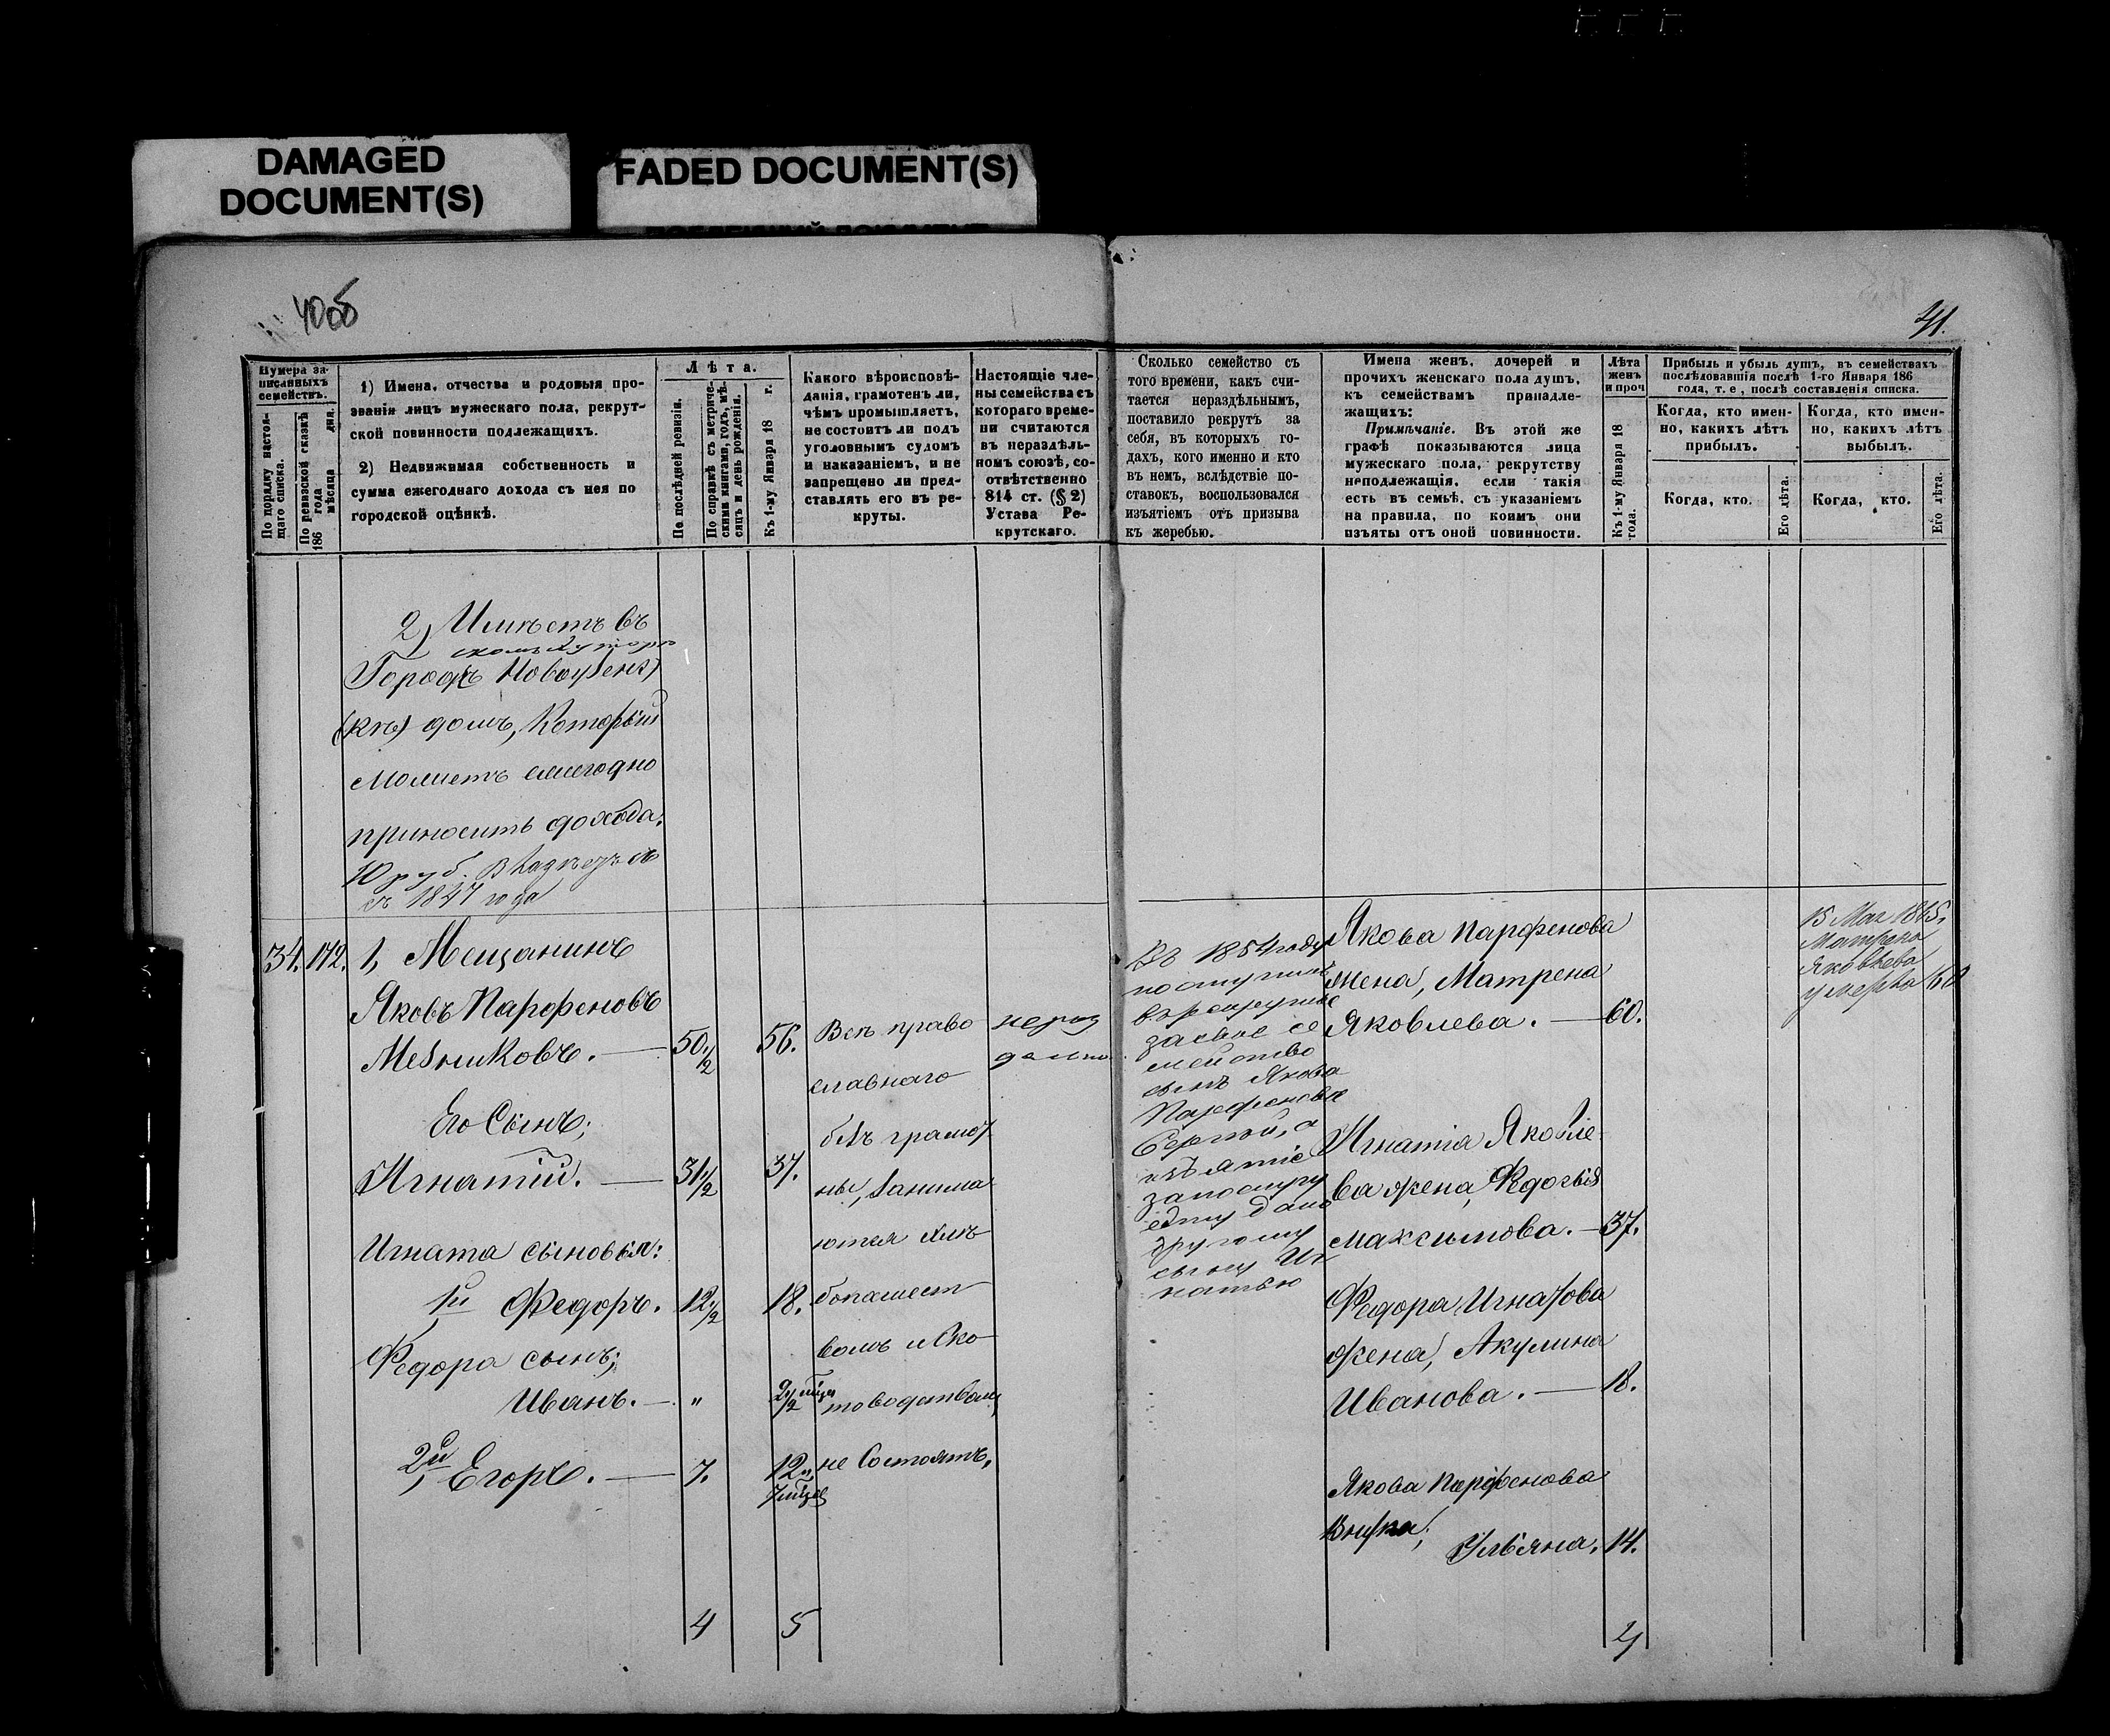 DAMAGED
DOCUMENT(S)
FADED DOCUMENT(S)
40об
41.
Нумера за-
писанныхъ
семействъ.
По порядку настоя-
щаго списка.
По ревизской сказкѣ
186 года мѣсяца дня.
1) Имена, отчества и родовыя про-
званія лицъ мужескаго пола, рекрут-
ской повинности подлежащихъ.
2) Недвижимая собственность и
сумма ежегоднаго дохода съ нея по
городской оцѣнкѣ.
Лѣта.
По послѣдней ревизіи.
По справкѣ съ метриче-
скими книгами, годъ, мѣ-
сяцъ и день рожденія.
Къ 1-му Января 18 г.
Какого вѣроисповѣ-
данія, грамотенъ ли,
чѣмъ промышляетъ,
не состоитъ ли подъ
уголовнымъ судомъ
и наказаніемъ, и не
запрещено ли пред-
ставлять его въ ре-
круты.
Настоящіе чле-
ны семейства съ
котораго време-
ни считаются
въ нераздѣль-
номъ союзѣ, со-
отвѣтственно
814 ст. (§ 2)
Устава Ре-
крутскаго.
Сколько семейство съ
того времени, какъ счи-
тается нераздѣльнымъ,
поставило рекрутъ за
себя, въ которыхъ го-
дахъ, кого именно и кто
въ немъ, вслѣдствіе по-
ставокъ, воспользовался
изъятіемъ отъ призыва
къ жеребью.
Имена женъ, дочерей и
прочихъ женскаго пола душъ,
къ семействамъ принадле-
жащихъ:
Примѣчаніе. Въ этой же
графѣ показываются лица
мужескаго пола, рекрутству
неподлежащія, если такія
есть въ семьѣ, съ указаніемъ
на правила, по коимъ они
изъяты отъ оной повинности.
Лѣта
женъ
и проч
Къ 1-му Января 18
года.
Прибыль и убыль душъ, въ семействахъ
послѣдовавшія послѣ 1-го Января 186
года, т. е, послѣ составленія списка.
Когда, кто имен-
но, какихъ лѣтъ
прибылъ.
Когда, кто имен-
но, какихъ лѣтъ
выбылъ.
Когда, кто.
Его лѣта.
Когда, кто.
Его лѣта.
2, Имѣетъ въ
Городѣ Новоузенс)
(кѣ) домъ, Который
Можетъ ежегодно
приносить дохода.
10 руб. Владѣетъ
съ 1847 года
34. 172. 1, Мещанинъ
Яковъ Парфеновъ
Мезниковъ. — 50.1/2 56.
Его Сынъ;
Игнатій. — 31 1/2 37.
Игната сыновья:
1й Федоръ. 12.1/2 18.
Федора сынъ;
Иванъ. — " 2 1/2 мѣця
2й Егоръ. — 7. 12 "
7 мѣцов
4 5
Всѣ право
славнаго
безъ грамот
ны, Занима
ются хлѣ
бопашест
вомъ и Ско
товодствомъ,
не Состоятъ.
нераз
дельно
Въ 1854 году
поступилъ
въ рекруты
за свое се
мейство
сынъ Якова
Парфенова
Сергей, а
изъятіе
за поступку
ему дано
другому
сыну Иг
натью
Якова Парфенова
жена, Матрена
Яковлева. — 60.
Игнатія Яковле-
ва жена, Федосья
Максимова. — 37.
Федора Игнатова
жена, Акулина
Иванова. — 18.
Якова Парфенова
Внука;
Ульяна. 14.
4
15 Мая 1865.
Матрена
Яковлева
умерла 60